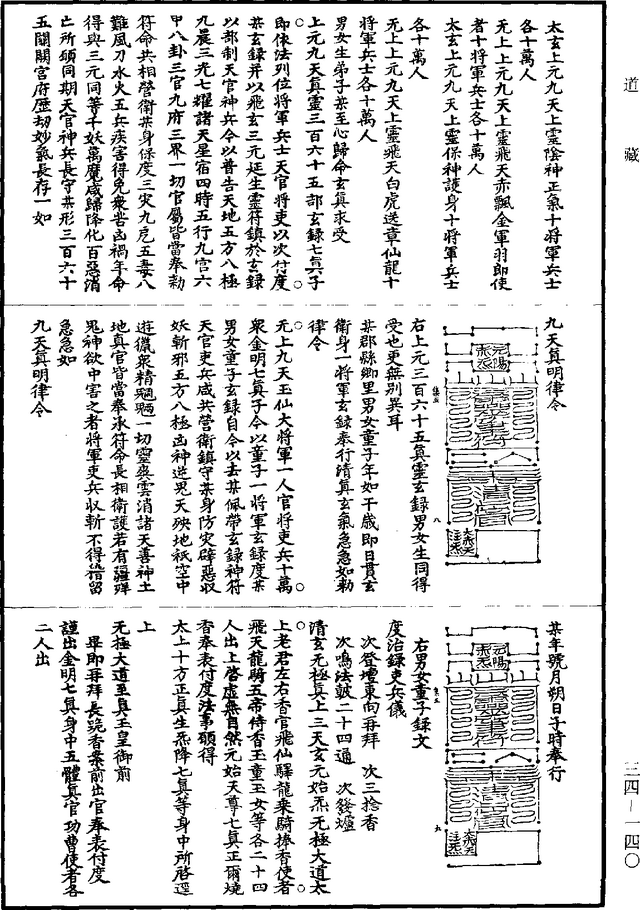 道藏
太玄上元九天上靈陰神正氣十將軍兵士
各十萬人
无上上元九天上靈飛天赤飄金軍羽郎使
者十將軍兵士各十萬人
太玄上元九天上靈保神護身十將軍兵士
各十萬人
无上上元九天上靈飛天白虎送章仙龍十
將軍兵士各十萬人
男女生弟子某至心歸命玄真求受
上元九天真靈三百六十五部玄録七真子
即依法列位將軍兵士天官將吏以次付度
某玄録并以飛玄三元延生靈符鎮於玄録
以部制天官神兵令以普告天地五方八極
九晨三光七耀諸天星宿四時五行九宫六
甲八卦三官九府三界一切官屬皆當奉勑
符命共相營衛某身保度三灾九厄五毒八
難風刀水火五兵疾害得免衆苦凶禍年命
得與三元同等千妖萬魔咸歸降化百惡消
亡所願同期天官神兵長守某形三百六十
五關關宫府歷劫妙氣長存一如
九天真明律令
元陽
右上元三百六十五真靈玄録男女生同得
受也更無别異耳
某郡縣鄉里男女童子年如干歲即日貫玄
衛身一將軍玄録奉行清真玄氣急急如勑
律令
元上九天玉仙大將軍一人官將吏兵十萬
衆金明七真子令以童子一將軍玄録度某
男女童子玄録自令以去某佩帶玄録神符
天官吏兵咸共營衛鎮守某身防灾辟惡収
妖斬邪五方八極凶神逆鬼天殃地祇空中
遊獵衆精魍魎一切靈癸雲消諸天善神土
地真官皆當奉承符命長相衛護若有疆殍
鬼神欲中害之者將軍吏兵収斬不得稽留
急急如
九天真明律令
八
某年號月朔日子時奉行
元陽
右男女童子録文
度治録吏兵儀
次登壇東向再拜 次三捻香
次鳴法鼓二十四通 次發爐
清玄元極真上三天玄元始炁无極大道太
上老君左右香官飛仙驛龍乘騎捧香使者
飛天龍騎五帝侍香玉童玉女等各二十四
人出上啓虚無自然元始天尊七真正爾燒
香奉表付度法事願得
太上十方正真生炁降七真等身中所啓逕
上
无極大道至真玉皇御前
畢即再拜長跪香案前出官奉表付度
謹出金明七真身中五體真官功曹使者各
二人出
九
三四—一四〇